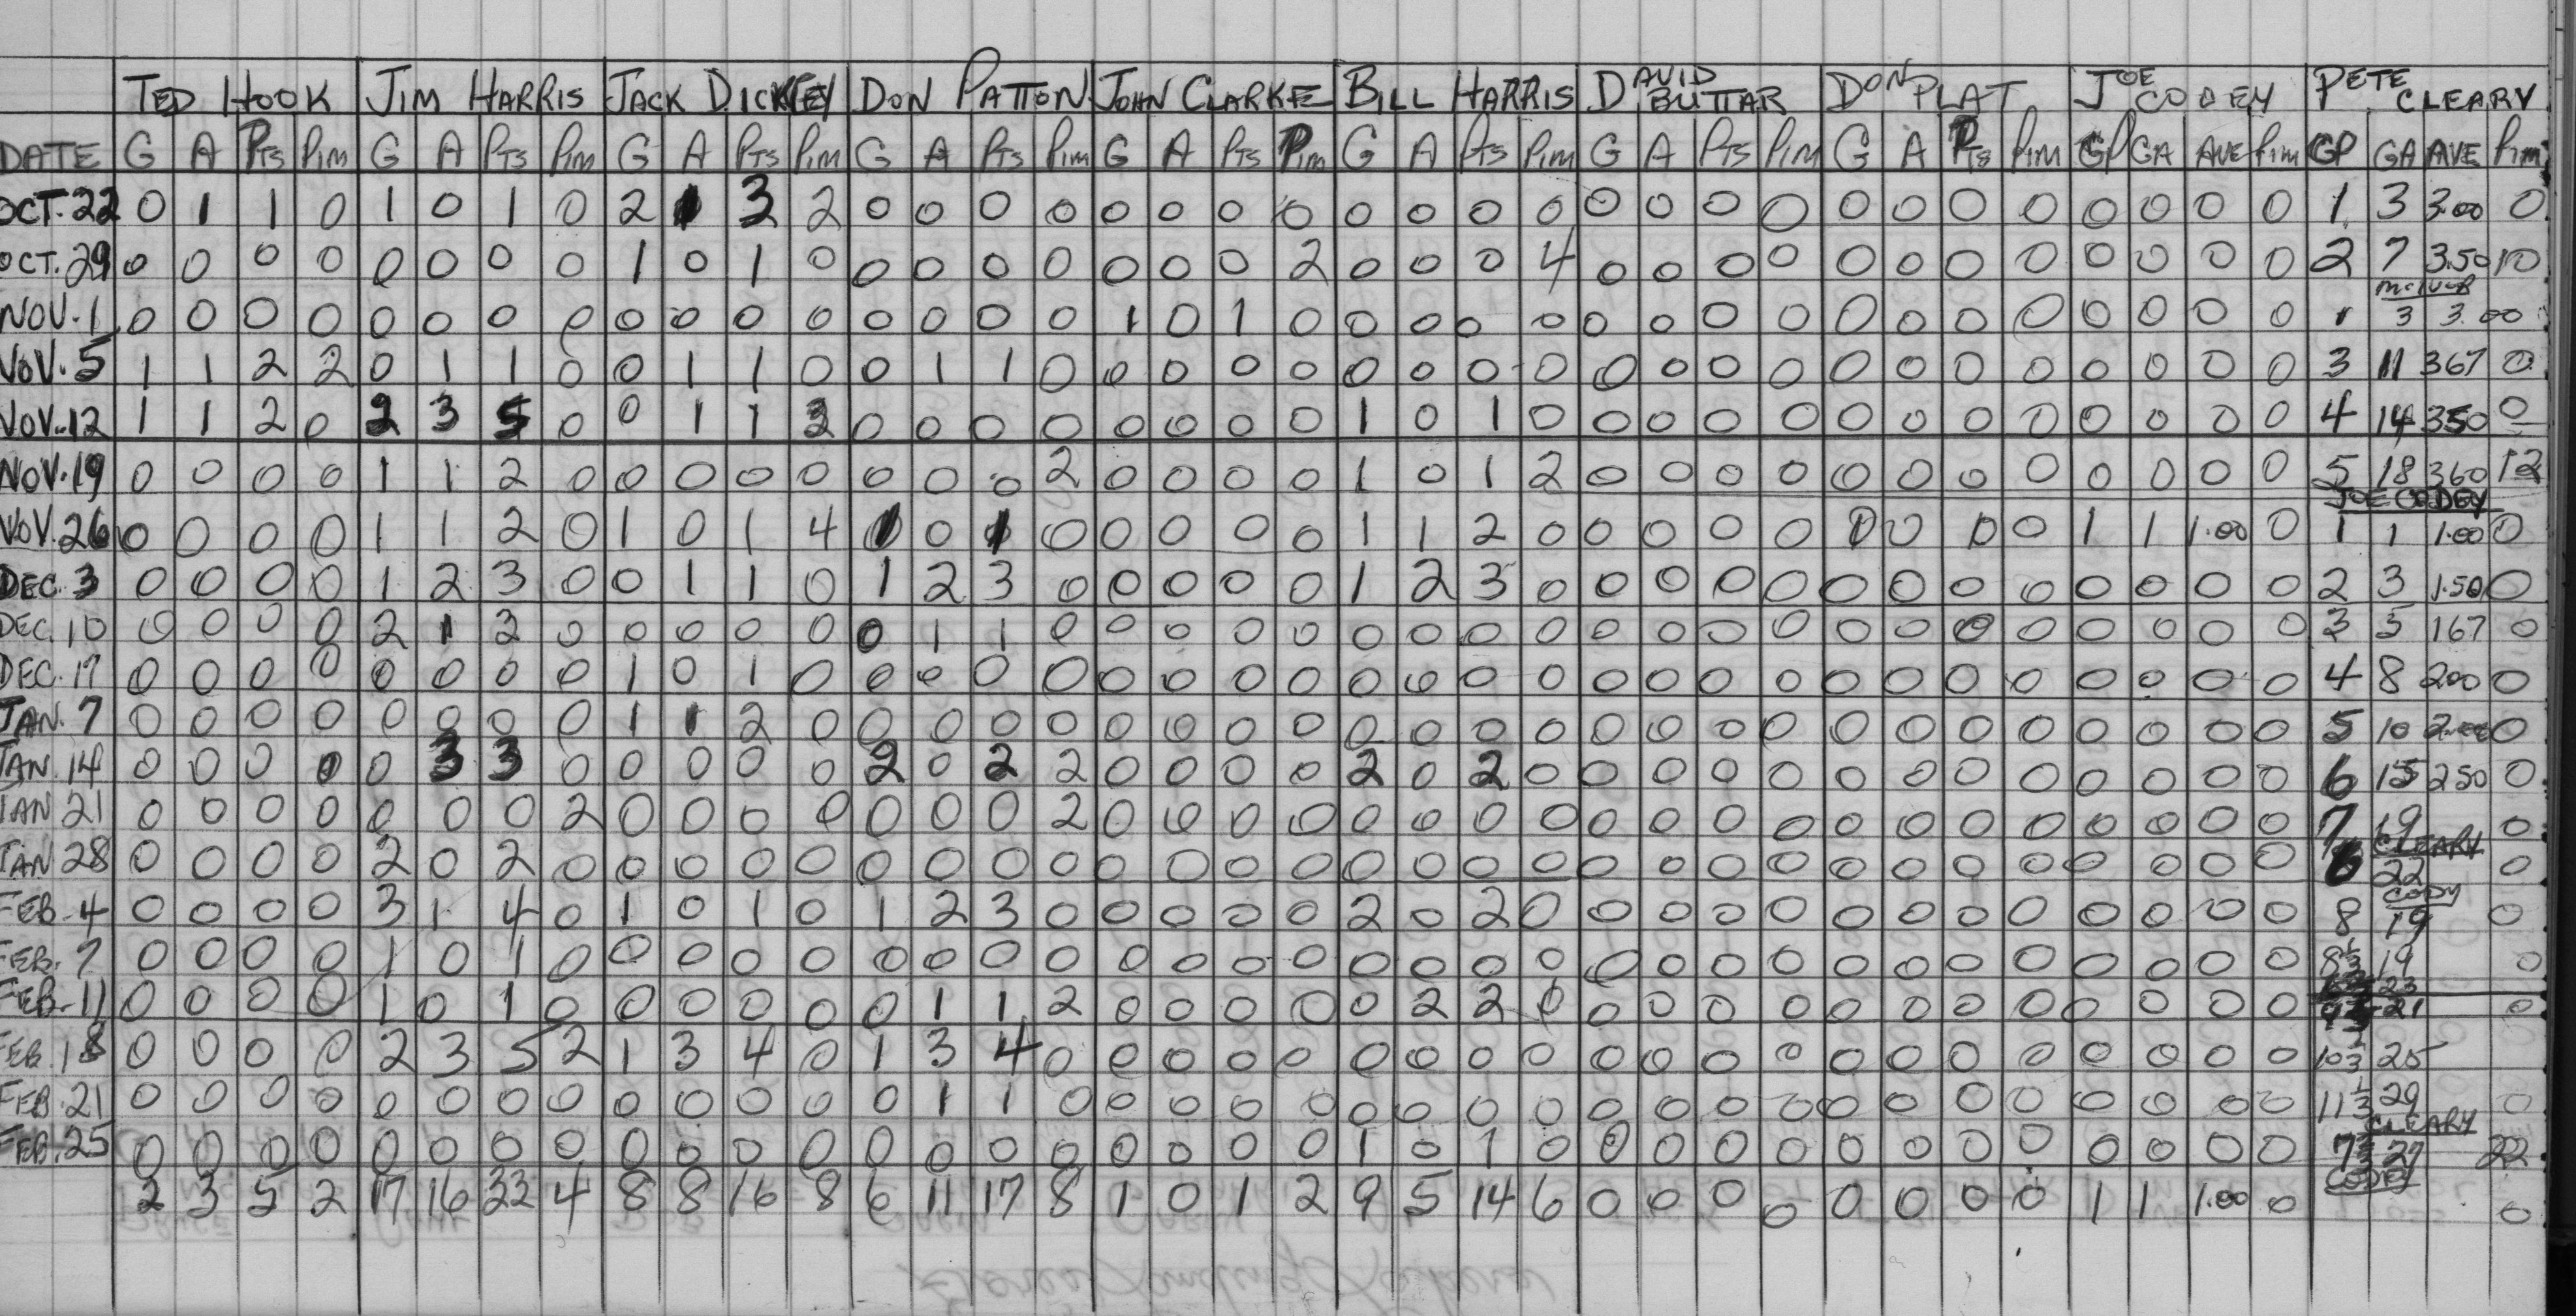 TED HOOK JIM HARRIS JACK DICKEY DON PATTON JOHN CLARKE BILL HARRIS DAVID BUTTAR DON PLAT JOE CODEY PETE CLEARY
DATE G A PTS PIM G A PTS PIM G A PTS PIM G A PTS PIM G A PTS PIM G A PTS PIM G A PTS PIM G A PTS PIM GP GA AVE PIM GP GA AVE PIM
OCT. 22 0 1 1 0 1 0 1 0 2 1 3 2 0 0 0 0 0 0 0 0 0 0 0 0 0 0 0 0 0 0 0 0 0 0 0 0 1 3 3.00 0
OCT. 29 0 0 0 0 0 0 0 0 1 0 1 0 0 0 0 0 0 0 0 2 0 0 0 4 0 0 0 0 0 0 0 0 0 0 0 0 2 7 3.50 10
NOV. 1 0 0 0 0 0 0 0 0 0 0 0 0 0 0 0 0 1 0 1 0 0 0 0 0 0 0 0 0 0 0 0 0 0 0 0 0 1 3 3.00
NOV. 5 1 1 2 2 0 1 1 0 0 1 1 0 0 1 1 0 0 0 0 0 0 0 0 0 0 0 0 0 0 0 0 0 0 0 0 0 3 11 367 0
NOV. 12 1 1 2 0 2 3 5 0 0 1 1 2 0 0 0 0 0 0 0 0 1 0 1 0 0 0 0 0 0 0 0 0 0 0 0 0 4 14 350 0
NOV. 19 0 0 0 0 1 1 2 0 0 0 0 0 0 0 0 2 0 0 0 0 1 0 1 2 0 0 0 0 0 0 0 0 0 0 0 0 5 18 360 12
JOE CODEY
NOV. 26 0 0 0 0 1 1 2 0 1 0 1 4 1 0 1 0 0 0 0 0 1 1 2 0 0 0 0 0 0 0 0 0 1 1 1.00 0 1 1 1.00 0
DEC. 3 0 0 0 0 1 2 3 0 0 1 1 0 1 2 3 0 0 0 0 0 1 2 3 0 0 0 0 0 0 0 0 0 0 0 0 0 2 3 1.50 0
DEC. 10 0 0 0 0 2 1 3 0 0 0 0 0 0 1 1 0 0 0 0 0 0 0 0 0 0 0 0 0 0 0 0 0 0 0 0 0 3 5 167 0
DEC. 17 0 0 0 0 0 0 0 0 1 0 1 0 0 0 0 0 0 0 0 0 0 0 0 0 0 0 0 0 0 0 0 0 0 0 0 0 4 8 200 0
JAN. 7 0 0 0 0 0 0 0 0 1 1 2 0 0 0 0 0 0 0 0 0 0 0 0 0 0 0 0 0 0 0 0 0 0 0 0 0 5 10 2.00 0
JAN. 14 0 0 0 0 0 3 3 0 0 0 0 0 2 0 2 2 0 0 0 0 2 0 2 0 0 0 0 0 0 0 0 0 0 0 0 0 6 15 250 0
JAN 21 0 0 0 0 0 0 0 2 0 0 0 0 0 0 0 2 0 0 0 0 0 0 0 0 0 0 0 0 0 0 0 0 0 0 0 0 7 19 0
CLEARY
JAN 28 0 0 0 0 2 0 2 0 0 0 0 0 0 0 0 0 0 0 0 0 0 0 0 0 0 0 0 0 0 0 0 0 0 0 0 0 6 22 0
CODY
FEB. 4 0 0 0 0 3 1 4 0 1 0 1 0 1 2 3 0 0 0 0 0 2 0 2 0 0 0 0 0 0 0 0 0 0 0 0 0 8 19 0
FEB. 7 0 0 0 0 1 0 1 0 0 0 0 0 0 0 0 0 0 0 0 0 0 0 0 0 0 0 0 0 0 0 0 0 0 0 0 0 8 1/3 19 0
23
FEB. 11 0 0 0 0 1 0 1 0 0 0 0 0 0 1 1 2 0 0 0 0 0 2 2 0 0 0 0 0 0 0 0 0 0 0 0 0 21 0
FEB. 18 0 0 0 0 2 3 5 2 1 3 4 0 1 3 4 0 0 0 0 0 0 0 0 0 0 0 0 0 0 0 0 0 0 0 0 0 10 1/3 25
FEB. 21 0 0 0 0 0 0 0 0 0 0 0 0 0 1 1 0 0 0 0 0 0 0 0 0 0 0 0 0 0 0 0 0 0 0 0 0 11 1/3 29 0
CLEARY
FEB. 25 0 0 0 0 0 0 0 0 0 0 0 0 0 0 0 0 0 0 0 0 1 0 1 0 0 0 0 0 0 0 0 0 0 0 0 0 27 22
CODEY
2 3 5 2 17 16 33 4 8 8 16 8 6 11 17 8 1 0 1 2 9 5 14 6 0 0 0 0 0 0 0 0 1 1 1.00 0 0